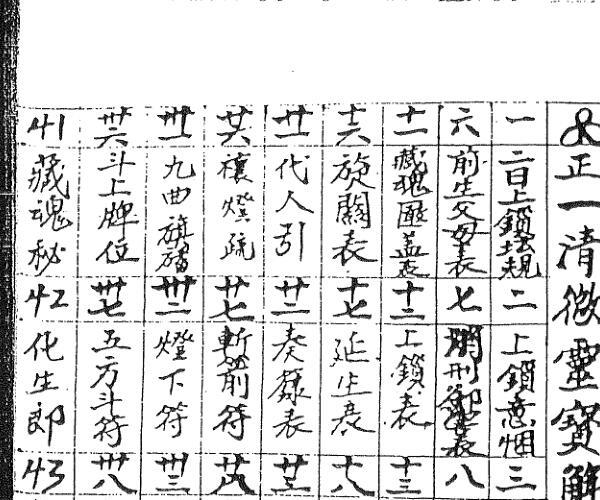 正一清微靈寶解
一
二日上鎖壇規
二
上鎖意烟
三
六
前生父母表
七
刑
表
八
十一
藏魂匭蓋表
十二
上鎖表
十三
十六
旋關表
十七
延生表
十八
廿一
代人引
廿二
奏籙表
廿三
廿六
禳燈疏
廿七
斬箭符
廿八
卅一
九曲旗旛
卅二
燈下符
卅三
卅六
斗上牌位
卅七
五方斗符
卅八
41
藏魂秘
42
化生郎
43